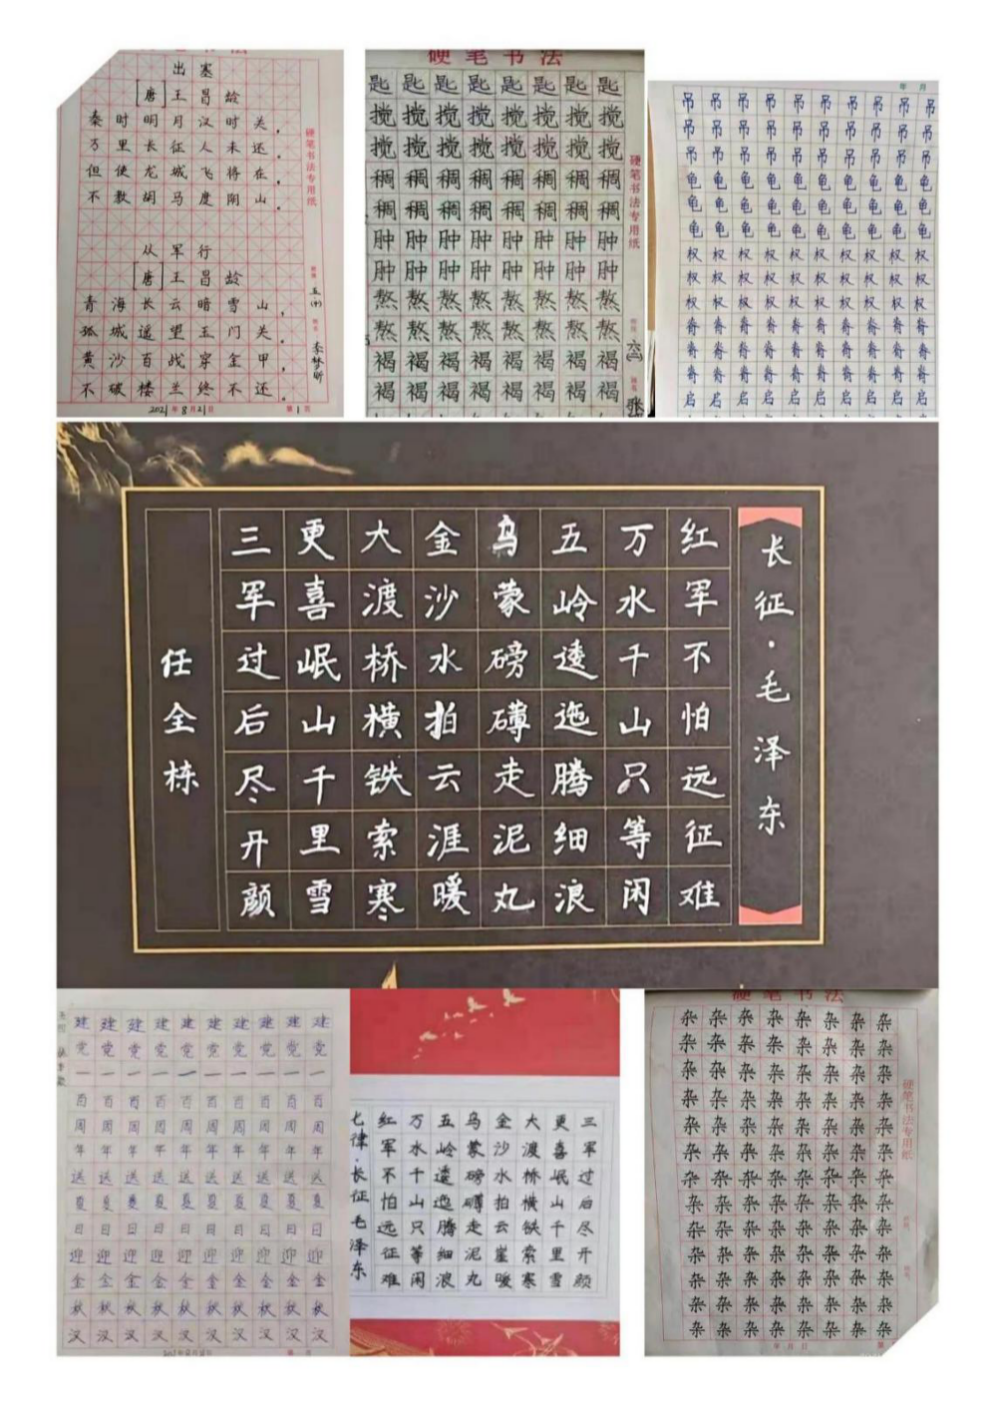 出塞
[唐]王昌龄
秦时明月汉时关，
万里长征人未还。
但使龙城飞将在，
不教胡马度阴山。
从军行
[唐]王昌龄
青海长云暗雪山，
孤城遥望玉门关。
黄沙百战穿金甲，
不破楼兰终不还。
硬笔书法专用纸
李梦昕
2021年8月21日
第1页
硬笔书法
匙匙匙匙匙匙匙匙
搅搅搅搅搅搅搅搅
搅搅搅搅搅搅搅搅
稠稠稠稠稠稠稠稠
稠稠稠稠稠稠稠稠
肿肿肿肿肿肿肿肿
肿肿肿肿肿肿肿肿
熬熬熬熬熬熬熬熬
熬熬熬熬熬熬熬熬
褐褐褐褐褐褐褐褐
褐褐褐褐褐褐褐褐
硬笔书法专用纸
六(二)
张
年月
吊吊吊吊吊吊吊吊吊吊
吊吊吊吊吊吊吊吊吊吊
吊吊吊吊吊吊吊吊吊吊
龟龟龟龟龟龟龟龟龟龟
龟龟龟龟龟龟龟龟龟龟
龟龟龟龟龟龟龟龟龟龟
权权权权权权权权权权
权权权权权权权权权权
权权权权权权权权权权
启启启启启启启启启启
长征·毛泽东
红军不怕远征难
万水千山只等闲
五岭逶迤腾细浪
乌蒙磅礴走泥丸
金沙水拍云涯暖
大渡桥横铁索寒
更喜岷山千里雪
三军过后尽开颜
任全栋
建建建建建建建建建建
党党党党党党党党党党
一一一一一一一一一一
百百百百百百百百百百
周周周周周周周周周周
年年年年年年年年年年
送送送送送送送送送送
夏夏夏夏夏夏夏夏夏夏
日日日日日日日日日日
迎迎迎迎迎迎迎迎迎迎
金金金金金金金金金金
秋秋秋秋秋秋秋秋秋秋
汉汉汉汉汉汉汉汉汉汉
七律·长征 毛泽东
红军不怕远征难
万水千山只等闲
五岭逶迤腾细浪
乌蒙磅礴走泥丸
金沙水拍云崖暖
大渡桥横铁索寒
更喜岷山千里雪
三军过后尽开颜
硬笔书法
杂杂杂杂杂杂杂杂
杂杂杂杂杂杂杂杂
杂杂杂杂杂杂杂杂
杂杂杂杂杂杂杂杂
杂杂杂杂杂杂杂杂
杂杂杂杂杂杂杂杂
杂杂杂杂杂杂杂杂
杂杂杂杂杂杂杂杂
杂杂杂杂杂杂杂杂
杂杂杂杂杂杂杂杂
杂杂杂杂杂杂杂杂
杂杂杂杂杂杂杂杂
杂杂杂杂杂杂杂杂
硬笔书法专用纸
年月日